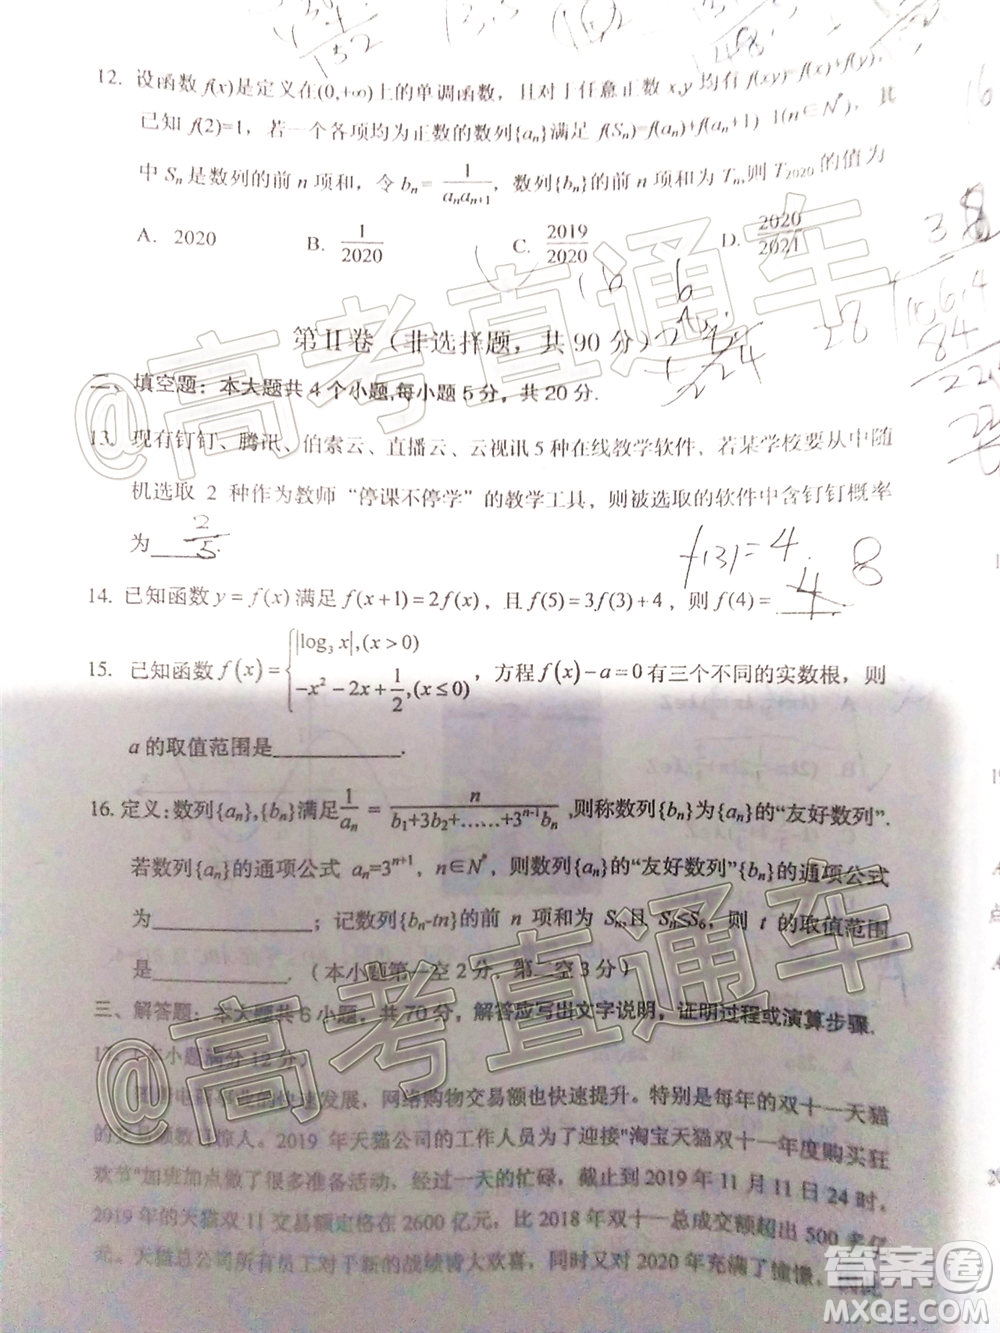 12. 设函数 f(x)是定义在(0,+∞)上的单调函数，且对于任意正数 x,y 均有 f(xy)=f(x)+f(y),
已知 f(2)=1，若一个各项均为正数的数列{aₙ}满足 f(Sₙ)=f(aₙ)+f(aₙ+1) 1(n∈N*)，其
中 Sₙ 是数列的前 n 项和，令 bₙ= 1/(aₙaₙ₊₁)，数列{bₙ}的前 n 项和为 Tₙ,则 T₂₀₂₀ 的值为
A. 2020 B. 1/2020 C. 2019/2020 D. 2020/2021
第 II 卷（非选择题，共 90 分）
二、填空题：本大题共 4 个小题,每小题 5 分，共 20 分.
13. 现有钉钉、腾讯、伯索云、直播云、云视讯 5 种在线教学软件，若某学校要从中随
机选取 2 种作为教师“停课不停学”的教学工具，则被选取的软件中含钉钉概率
为 2/5.
f(3)=4. 8
14. 已知函数 y = f(x) 满足 f(x+1)=2f(x)，且 f(5)=3f(3)+4，则 f(4)= 4
15. 已知函数 f(x)={|log₃x|,(x>0)
-x²-2x+1/2,(x≤0)，方程 f(x)-a=0 有三个不同的实数根，则
a 的取值范围是____________.
16. 定义：数列{aₙ},{bₙ}满足 1/aₙ = n/(b₁+3b₂+……+3ⁿ⁻¹bₙ),则称数列{bₙ}为{aₙ}的“友好数列”.
若数列{aₙ}的通项公式 aₙ=3ⁿ⁺¹，n∈N*，则数列{aₙ}的“友好数列”{bₙ}的通项公式
为____________；记数列{bₙ-tn}的前 n 项和为 Sₙ,且 Sₙ≤S₆，则 t 的取值范围
是________.（本小题第一空 2 分，第二空 3 分）
三、解答题：本大题共 6 小题，共 70 分，解答应写出文字说明，证明过程或演算步骤.
17.（本小题满分 12 分）
电商事业的快速发展，网络购物交易额也快速提升。特别是每年的双十一天猫
惊人。2019 年天猫公司的工作人员为了迎接“淘宝天猫双十一年度购买狂
欢节”加班加点做了很多准备活动，经过一天的忙碌，截止到 2019 年 11 月 11 日 24 时，
2019 年的天猫双 11 交易额定格在 2600 亿元，比 2018 年双十一总成交额超出 500 多亿
元。天猫总公司所有员工对于新的战绩皆大欢喜，同时又对 2020 年充满了憧憬，因此
@高考直通车
@高考直通车
答案圈
MXQE.COM